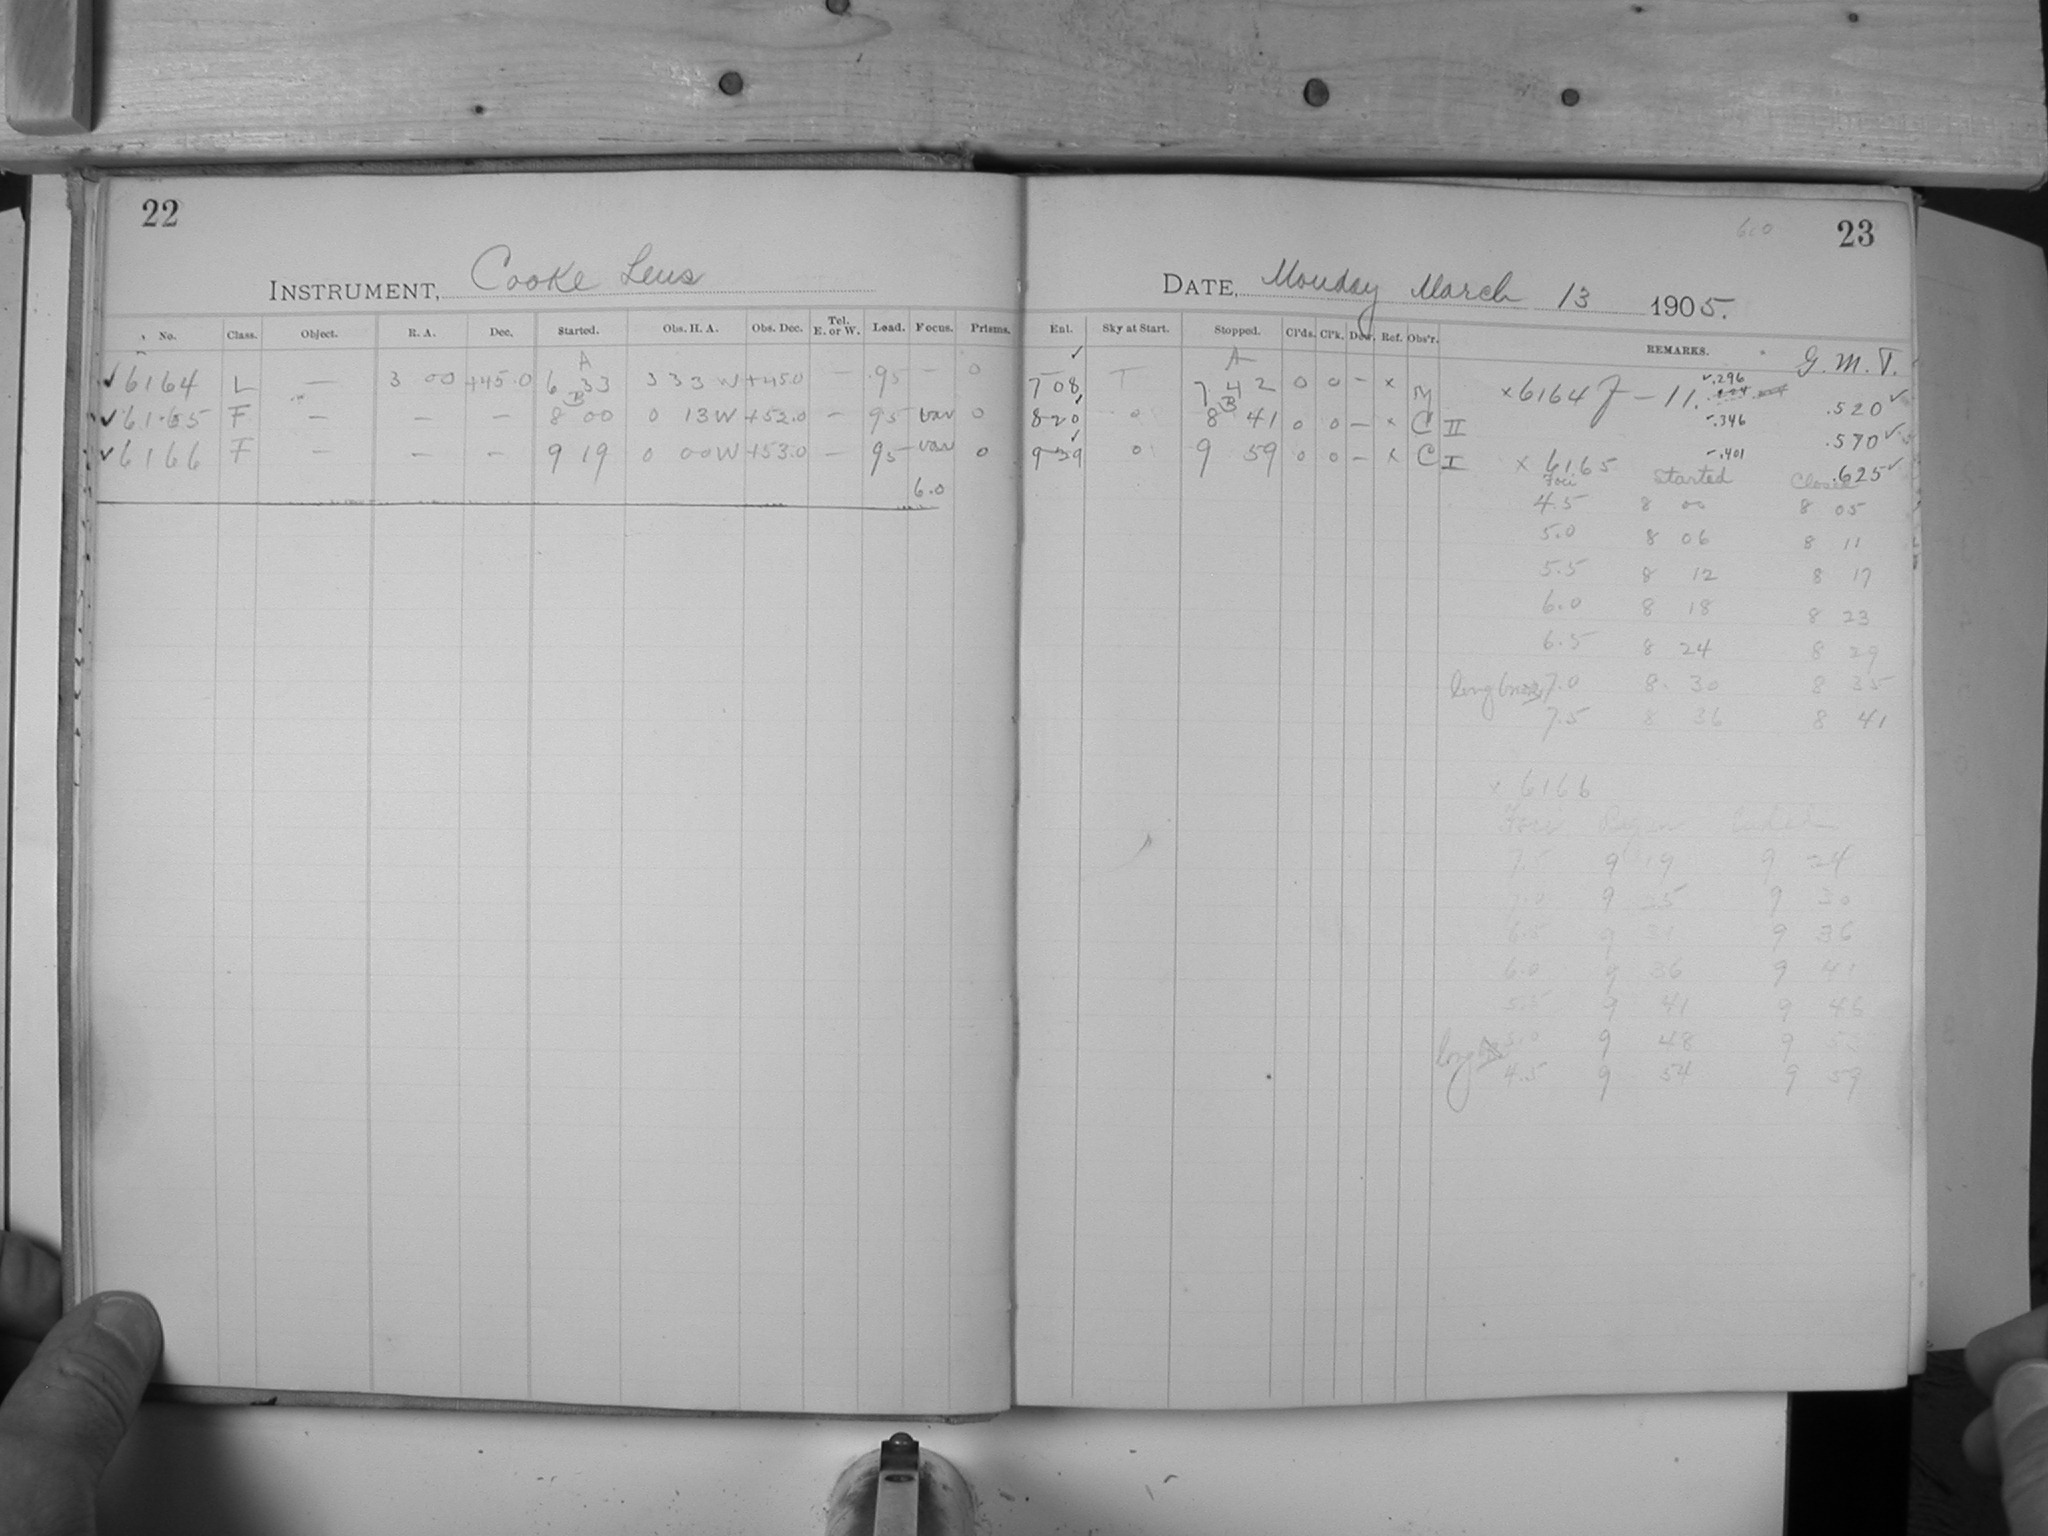 22
INSTRUMENT, Cooke Lens
No. Class. Object. R. A. Dec. Started. Obs. H. A. Obs. Dec. Tel. E. or W. Load. Focus. Prisms.
A
✓6164 L — 3 00 +45.0 6 33 3 33 W +45.0 — .95 — 0
B
✓6165 F — — — 8 00 0 13W +52.0 — 95 var 0
✓6166 F — — — 9 19 0 00W +53.0 — 95 var 0
6.0
6.0
23
DATE, Monday March 13 1905.
Enl. Sky at Start. Stopped. Cl'ds. Cl'k. Dew. Ref. Obs'r. REMARKS.
G. M. T.
✓ A
7 08 T 7 42 0 0 — x M x 6164 J — 11. ✓.296 .520✓
B
8 20 0 8 41 0 0 — x C II ✓.346 .570✓
9 39 0 9 59 0 0 — x C I x 6165 ✓.401 .625✓
Foci Started Closed
4.5 8 00 8 05
5.0 8 06 8 11
5.5 8 12 8 17
6.0 8 18 8 23
6.5 8 24 8 29
long 7.0 8 30 8 35
7.5 8 36 8 41
x 6166
Foci Began Ended
7.5 9 19 9 24
7.0 9 25 9 30
6.5 9 31 9 36
6.0 9 36 9 41
5.5 9 41 9 46
long 5.0 9 48 9
4.5 9 54 9 59